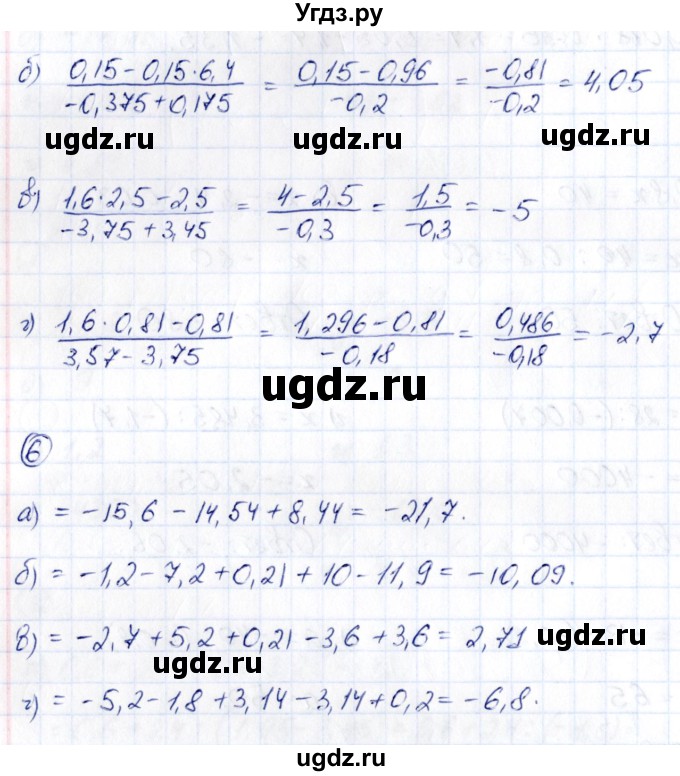 Угдз.ру
б) (0,15 - 0,15·6,4)/(-0,375 + 0,175) = (0,15 - 0,96)/(-0,2) = (-0,81)/(-0,2) = 4,05
ugdz.ru ugdz.ru
в) (1,6·2,5 - 2,5)/(-3,75 + 3,45) = (4 - 2,5)/(-0,3) = (1,5)/(-0,3) = -5
г) (1,6·0,81 - 0,81)/(3,57 - 3,75) = (1,296 - 0,81)/(-0,18) = (0,486)/(-0,18) = -2,7
ugdz.ru
6
а) = -15,6 - 14,54 + 8,44 = -21,7.
б) = -1,2 - 7,2 + 0,21 + 10 - 11,9 = -10,09.
в) = -2,7 + 5,2 + 0,21 - 3,6 + 3,6 = 2,71 ugdz.ru
ugdz.ru
г) = -5,2 - 1,8 + 3,14 - 3,14 + 0,2 = -6,8.
ugdz.ru